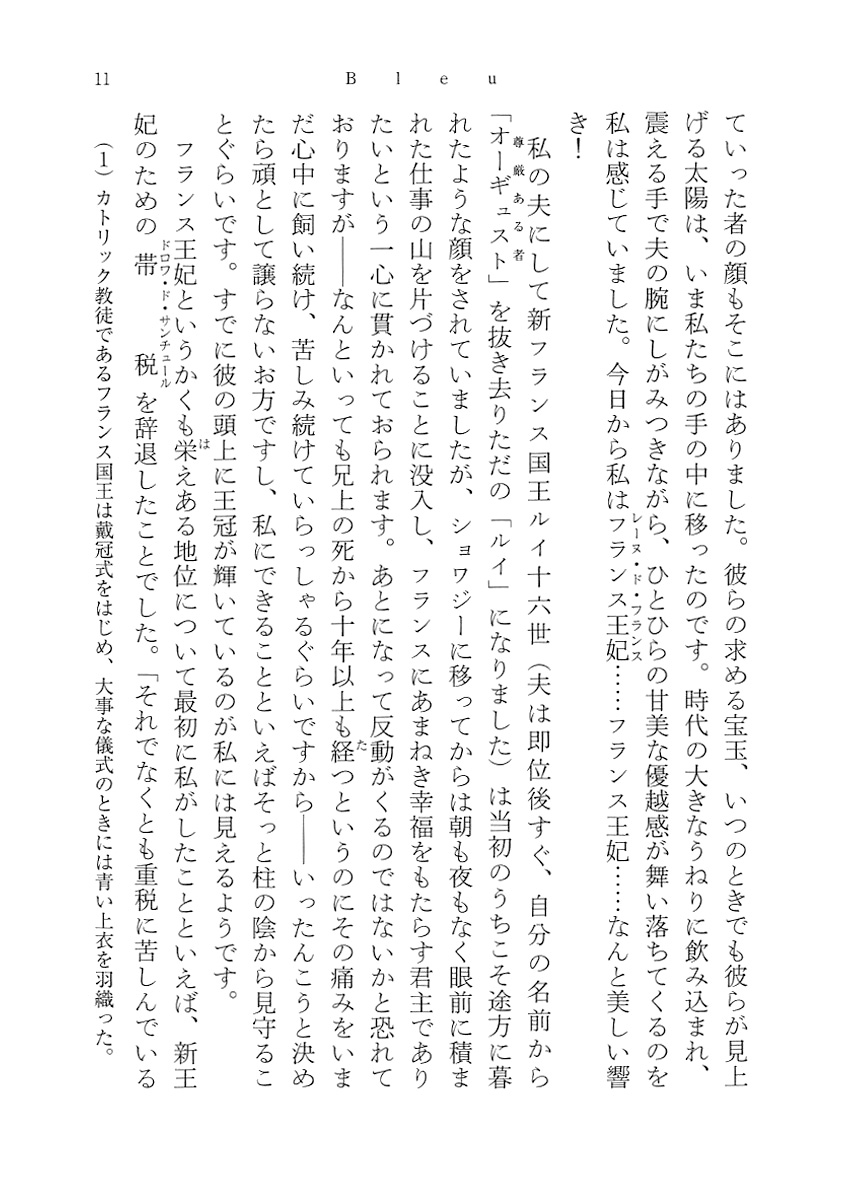 11
Bleu
ていった者の顔もそこにはありました。彼らの求める宝玉、いつのときでも彼らが見上
げる太陽は、いま私たちの手の中に移ったのです。時代の大きなうねりに飲み込まれ、
震える手で夫の腕にしがみつきながら、ひとひらの甘美な優越感が舞い落ちてくるのを
私は感じていました。今日から私はフランス王妃……フランス王妃……なんと美しい響
レーヌ・ド・フランス
き！
私の夫にして新フランス国王ルイ十六世（夫は即位後すぐ、自分の名前から
「オーギュスト」を抜き去りただの「ルイ」になりました）は当初のうちこそ途方に暮
尊厳ある者
れたような顔をされていましたが、ショワジーに移ってからは朝も夜もなく眼前に積ま
れた仕事の山を片づけることに没入し、フランスにあまねき幸福をもたらす君主であり
たいという一心に貫かれておられます。あとになって反動がくるのではないかと恐れて
おりますが――なんといっても兄上の死から十年以上も経つというのにその痛みをいま
た
だ心中に飼い続け、苦しみ続けていらっしゃるぐらいですから――いったんこうと決め
たら頑として譲らないお方ですし、私にできることといえばそっと柱の陰から見守るこ
とぐらいです。すでに彼の頭上に王冠が輝いているのが私には見えるようです。
フランス王妃というかくも栄えある地位について最初に私がしたことといえば、新王
は
妃のための帯税を辞退したことでした。「それでなくとも重税に苦しんでいる
ドロワ・ド・サンチュール
（1）カトリック教徒であるフランス国王は戴冠式をはじめ、大事な儀式のときには青い上衣を羽織った。